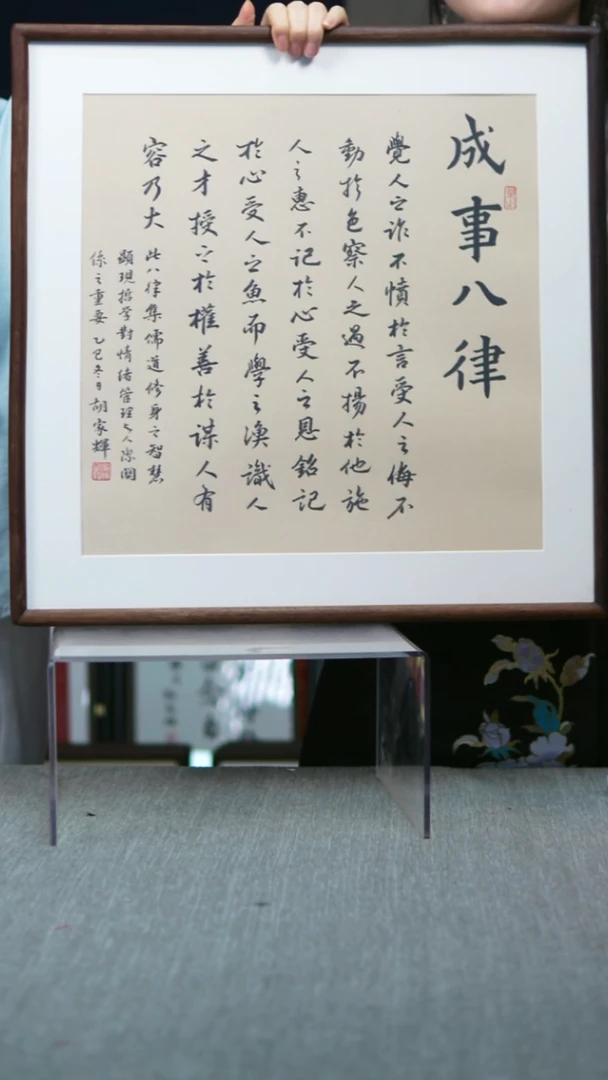 成事八律
覺人之詐不憤於言受人之侮不
動於色察人之過不揚於他施
人之惠不記於心受人之恩銘記
於心受人之魚而學之漁識人
之才授之於權善於謀人有
容乃大
此八律集儒道修身之智慧
顯現哲學對情緒管理之人際関
係之重要乙巳冬月胡家輝